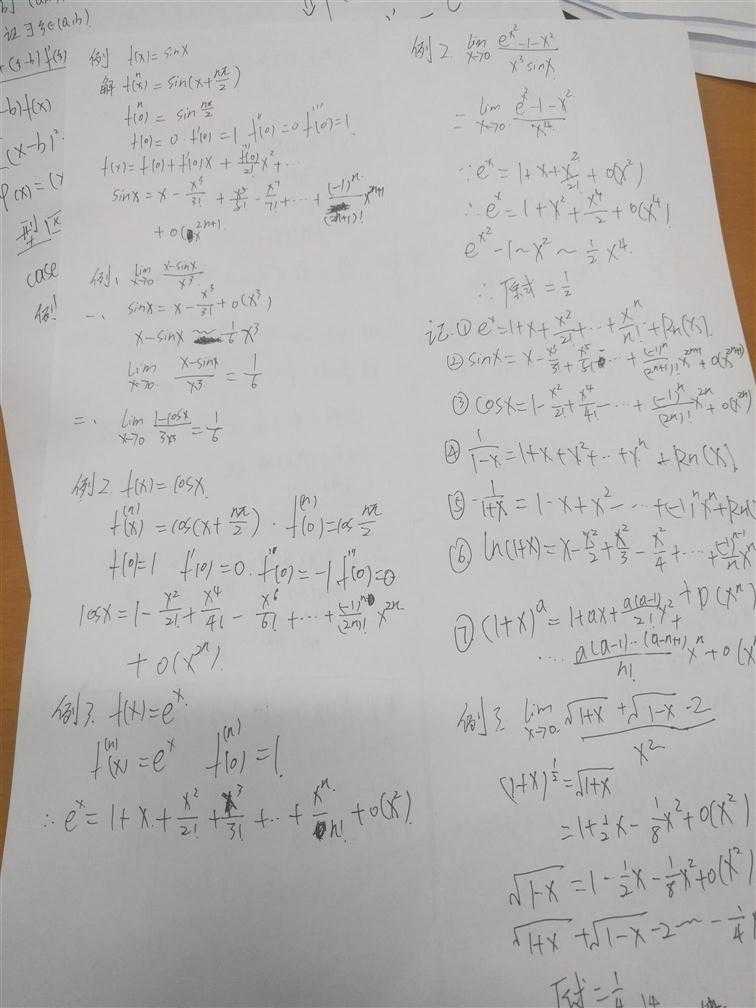 证∃ξ∈(a,b)
-b)f(x)
(x-b)²
φ(x)=(x
case
例 f(x)=sinx
解 f^(n)(x)=sin(x+nπ/2)
f^n(0)=sin nπ/2
f(0)=0 f'(0)=1 f''(0)=0 f'''(0)=1
f(x)=f(0)+f'(0)x+f''(0)/2! x²+…
sinx=x-x³/3!+x⁵/5!-x⁷/7!+…+(-1)^n/(2n+1)! x^(2n+1)
+o(x^(2n+1)
例1 lim x→0 (x-sinx)/x³
一、 sinx=x-x³/3!+o(x³)
x-sinx ~ 1/6 x³
lim x→0 (x-sinx)/x³=1/6
二、 lim x→0 (1-cosx)/3x²=1/6
例2 f(x)=cosx
f^(n)(x)=cos(x+nπ/2)· f^(n)(0)=cos nπ/2
f(0)=1 f'(0)=0 f''(0)=-1 f'''(0)=0
cosx=1-x²/2!+x⁴/4!-x⁶/6!+…+(-1)^n/(2n)! x^2n
+o(x^2n)
例3. f(x)=e^x
f^(n)(x)=e^x f^(n)(0)=1.
∴e^x=1+x+x²/2!+x³/3!+…+x^n/n!+o(x²)
例2. lim x→0 (e^x²-1-x²)/(x³sinx)
=lim x→0 (e^x²-1-x²)/x⁴
∵e^x=1+x+x²/2!+o(x²)
∴e^x=1+x²+x⁴/2+o(x⁴)
e^x²-1-x²~1/2 x⁴
∴原式=1/2
记:①e^x=1+x+x²/2!+…+x^n/n!+Rn(x).
②sinx=x-x³/3!+x⁵/5!-…+(-1)^n/(2n+1)! x^(2n+1)+o(x^(2n+1))
③cosx=1-x²/2!+x⁴/4!-…+(-1)^n/(2n)! x^2n+o(x^2n)
④1/(1-x)=1+x+x²+…+x^n+Rn(x)
⑤1/(1+x)=1-x+x²-…+(-1)^n x^n+Rn(
⑥ln(1+x)=x-x²/2+x²/3-x²/4+…+(-1)^(n-1)/n x^n
+o(x^n)
⑦(1+x)^a=1+ax+a(a-1)/2! x²+
…a(a-1)…(a-n+1)/n! x^n+o(x
例3 lim x→0 (√(1+x)+√(1-x)-2)/x²
(1+x)^½=√(1+x)
=1+1/2x-1/8x²+o(x²)
√(1-x)=1-1/2x-1/8x²+o(x²)
√(1+x)+√(1-x)-2~-1/4
原式=1/4